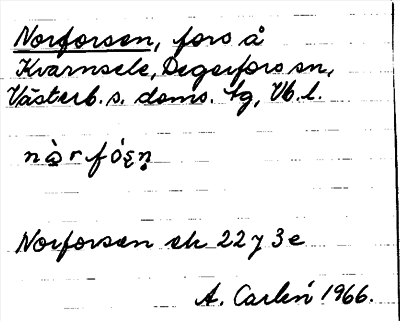 Norforsen, fors å
Kvarnsele, Degerfors sn,
Västerb. s. doms. tg, Vb. l.
nὰr fóşṇ
Norforsen ek 22 y 3 e
A. Carlén 1966.